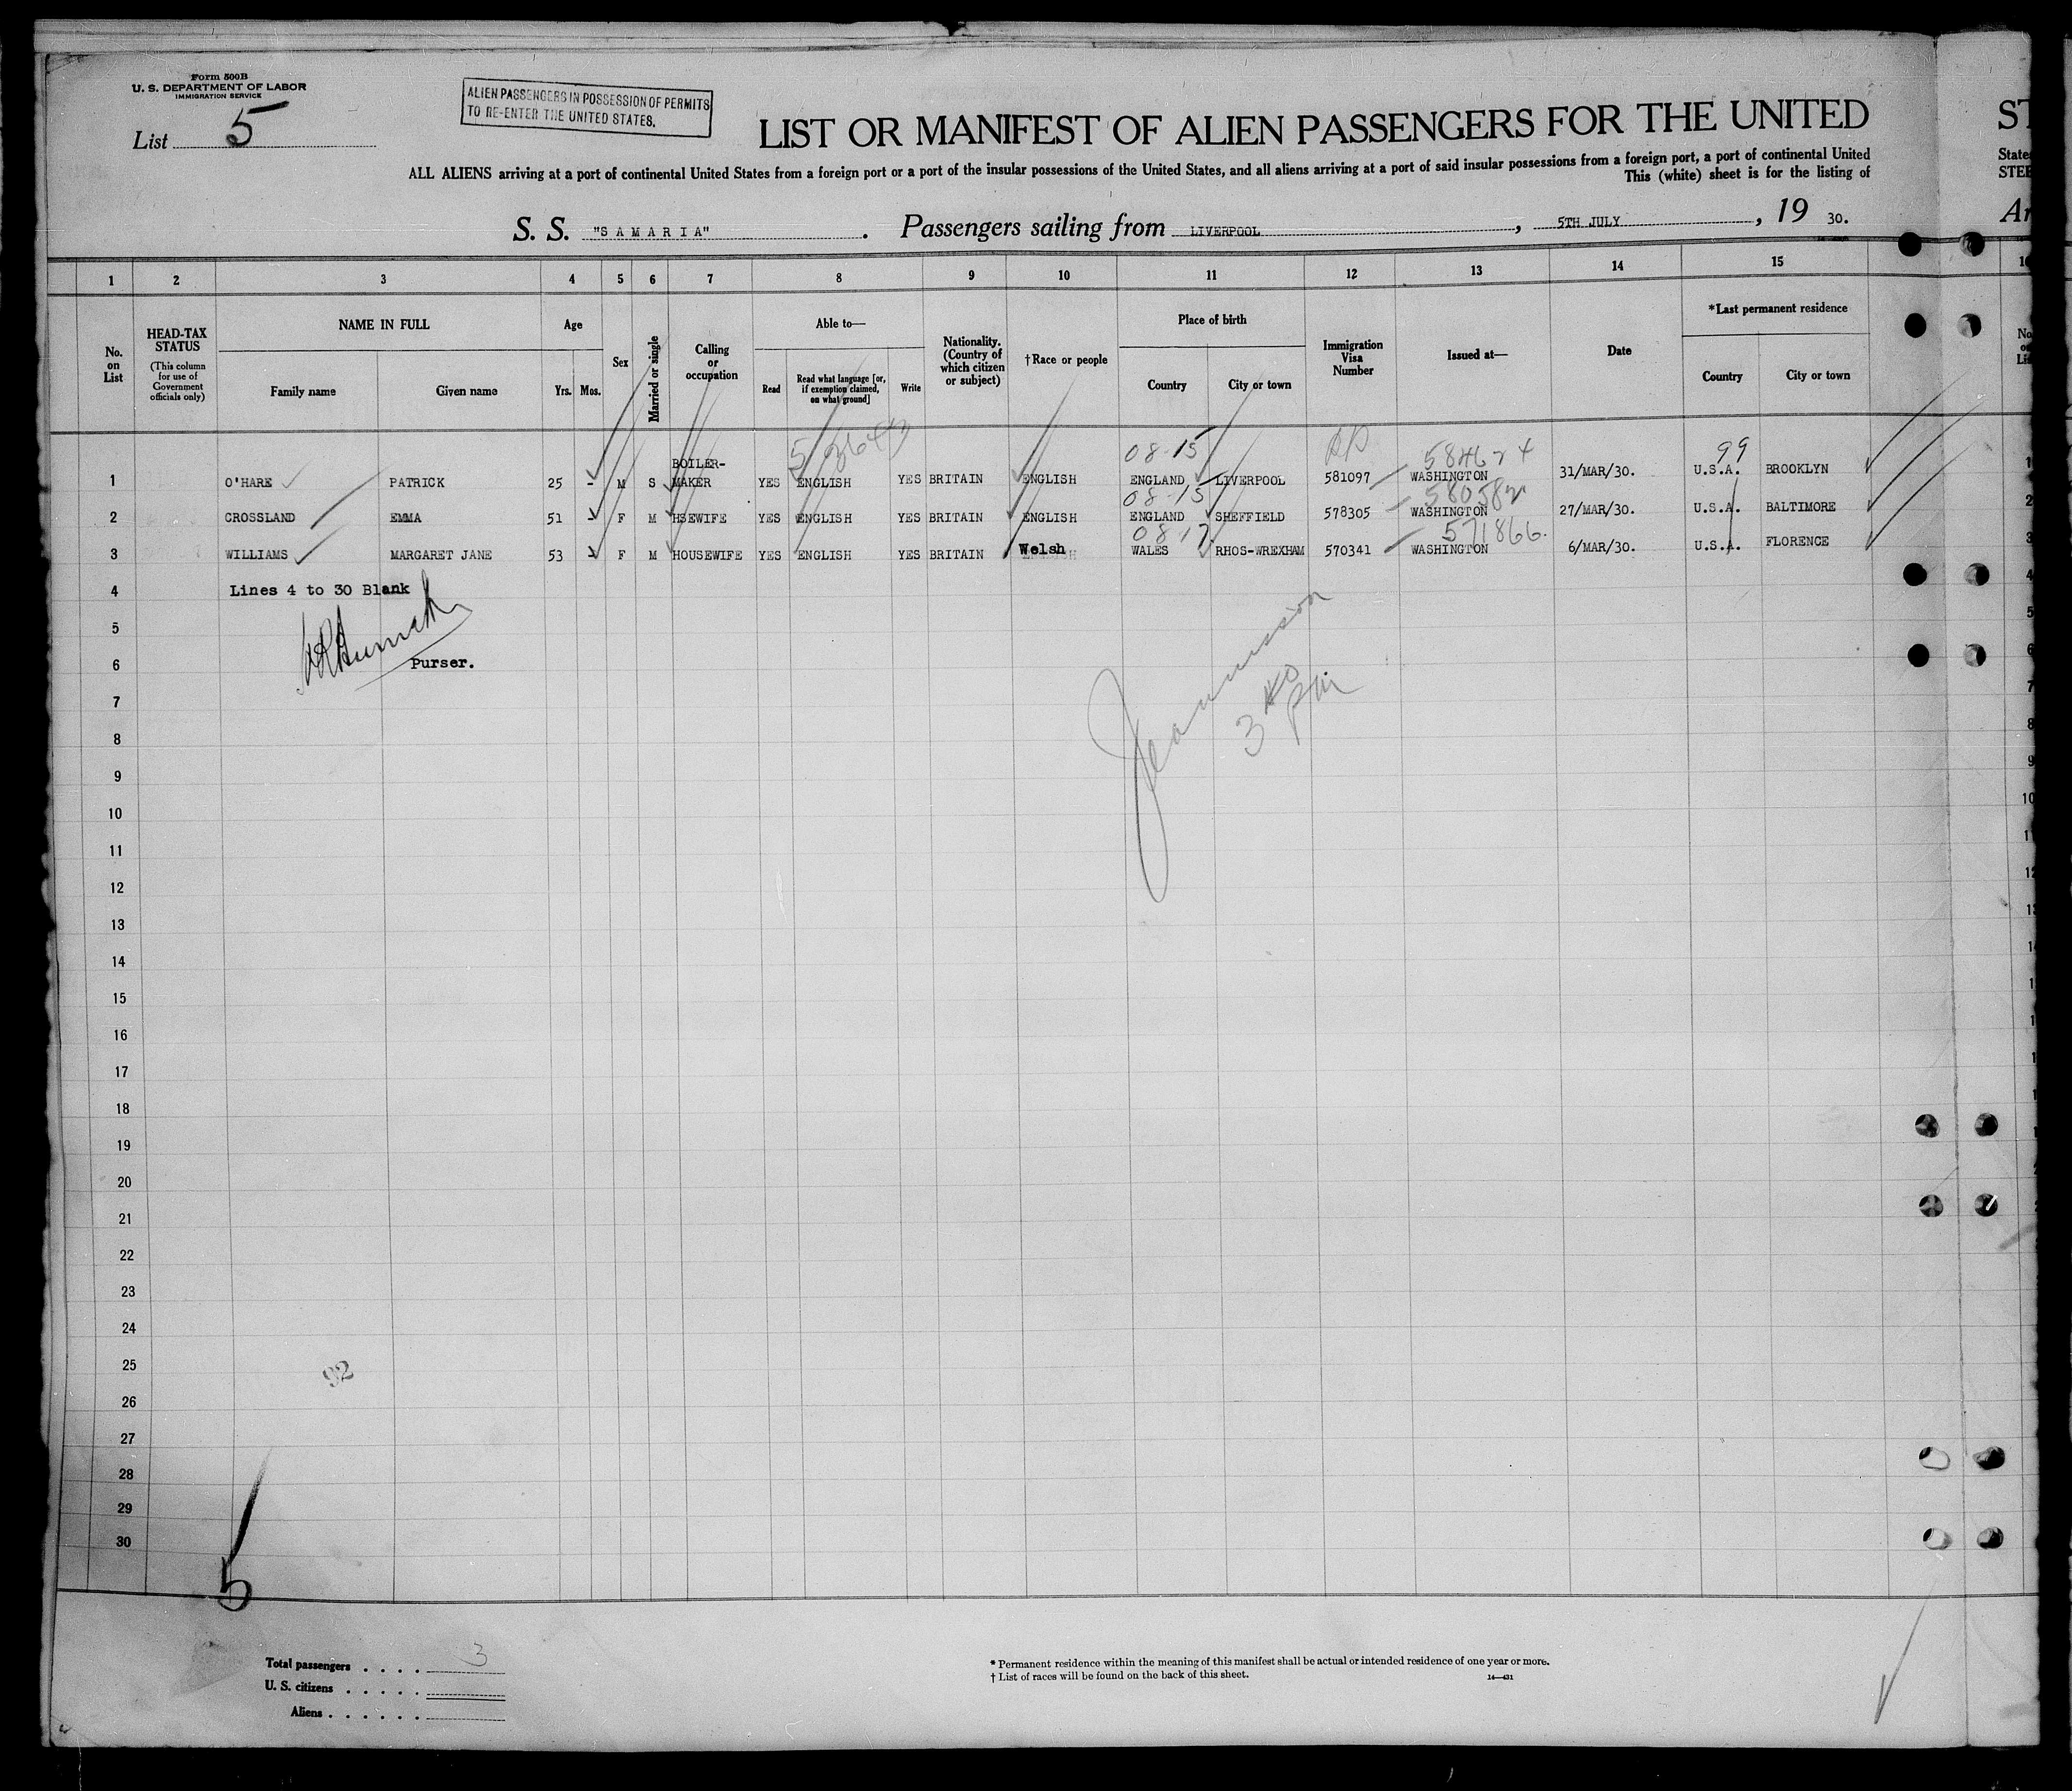 Form 500B
U. S. DEPARTMENT OF LABOR
IMMIGRATION SERVICE
List 5
ALIEN PASSENGERS IN POSSESSION OF PERMITS
TO RE-ENTER THE UNITED STATES.
LIST OR MANIFEST OF ALIEN PASSENGERS FOR THE UNITED
ALL ALIENS arriving at a port of continental United States from a foreign port or a port of the insular possessions of the United States, and all aliens arriving at a port of said insular possessions from a foreign port, a port of continental United
This (white) sheet is for the listing of
S. S. "SAMARIA". Passengers sailing from LIVERPOOL, 5TH JULY, 19 30.
1 2 3 4 5 6 7 8 9 10 11 12 13 14 15
No. on List
HEAD-TAX STATUS (This column for use of Government officials only)
NAME IN FULL
Family name Given name
Age
Yrs. Mos.
Sex
Married or single
Calling or occupation
Able to—
Read Read what language [or, if exemption claimed, on what ground] Write
Nationality. (Country of which citizen or subject)
†Race or people
Place of birth
Country City or town
Immigration Visa Number
Issued at—
Date
*Last permanent residence
Country City or town
08-15 99
1 O'HARE PATRICK 25 - M S BOILER-MAKER YES ENGLISH YES BRITAIN ENGLISH ENGLAND LIVERPOOL 581097 WASHINGTON 31/MAR/30. U.S.A. BROOKLYN
08-15
2 CROSSLAND EMMA 51 - F M HSEWIFE YES ENGLISH YES BRITAIN ENGLISH ENGLAND SHEFFIELD 578305 WASHINGTON 27/MAR/30. U.S.A. BALTIMORE
08-17 571866.
3 WILLIAMS MARGARET JANE 53 - F M HOUSEWIFE YES ENGLISH YES BRITAIN Welsh WALES RHOS-WREXHAM 570341 WASHINGTON 6/MAR/30. U.S.A. FLORENCE
4 Lines 4 to 30 Blank
5
6 Purser.
7
8
9
10
11
12
13
14
15
16
17
18
19
20
21
22
23
24
25
92
26
27
28
29
30
5
Total passengers . . . . 3
U. S. citizens . . . . .
Aliens . . . . . .
* Permanent residence within the meaning of this manifest shall be actual or intended residence of one year or more.
† List of races will be found on the back of this sheet.
14—431